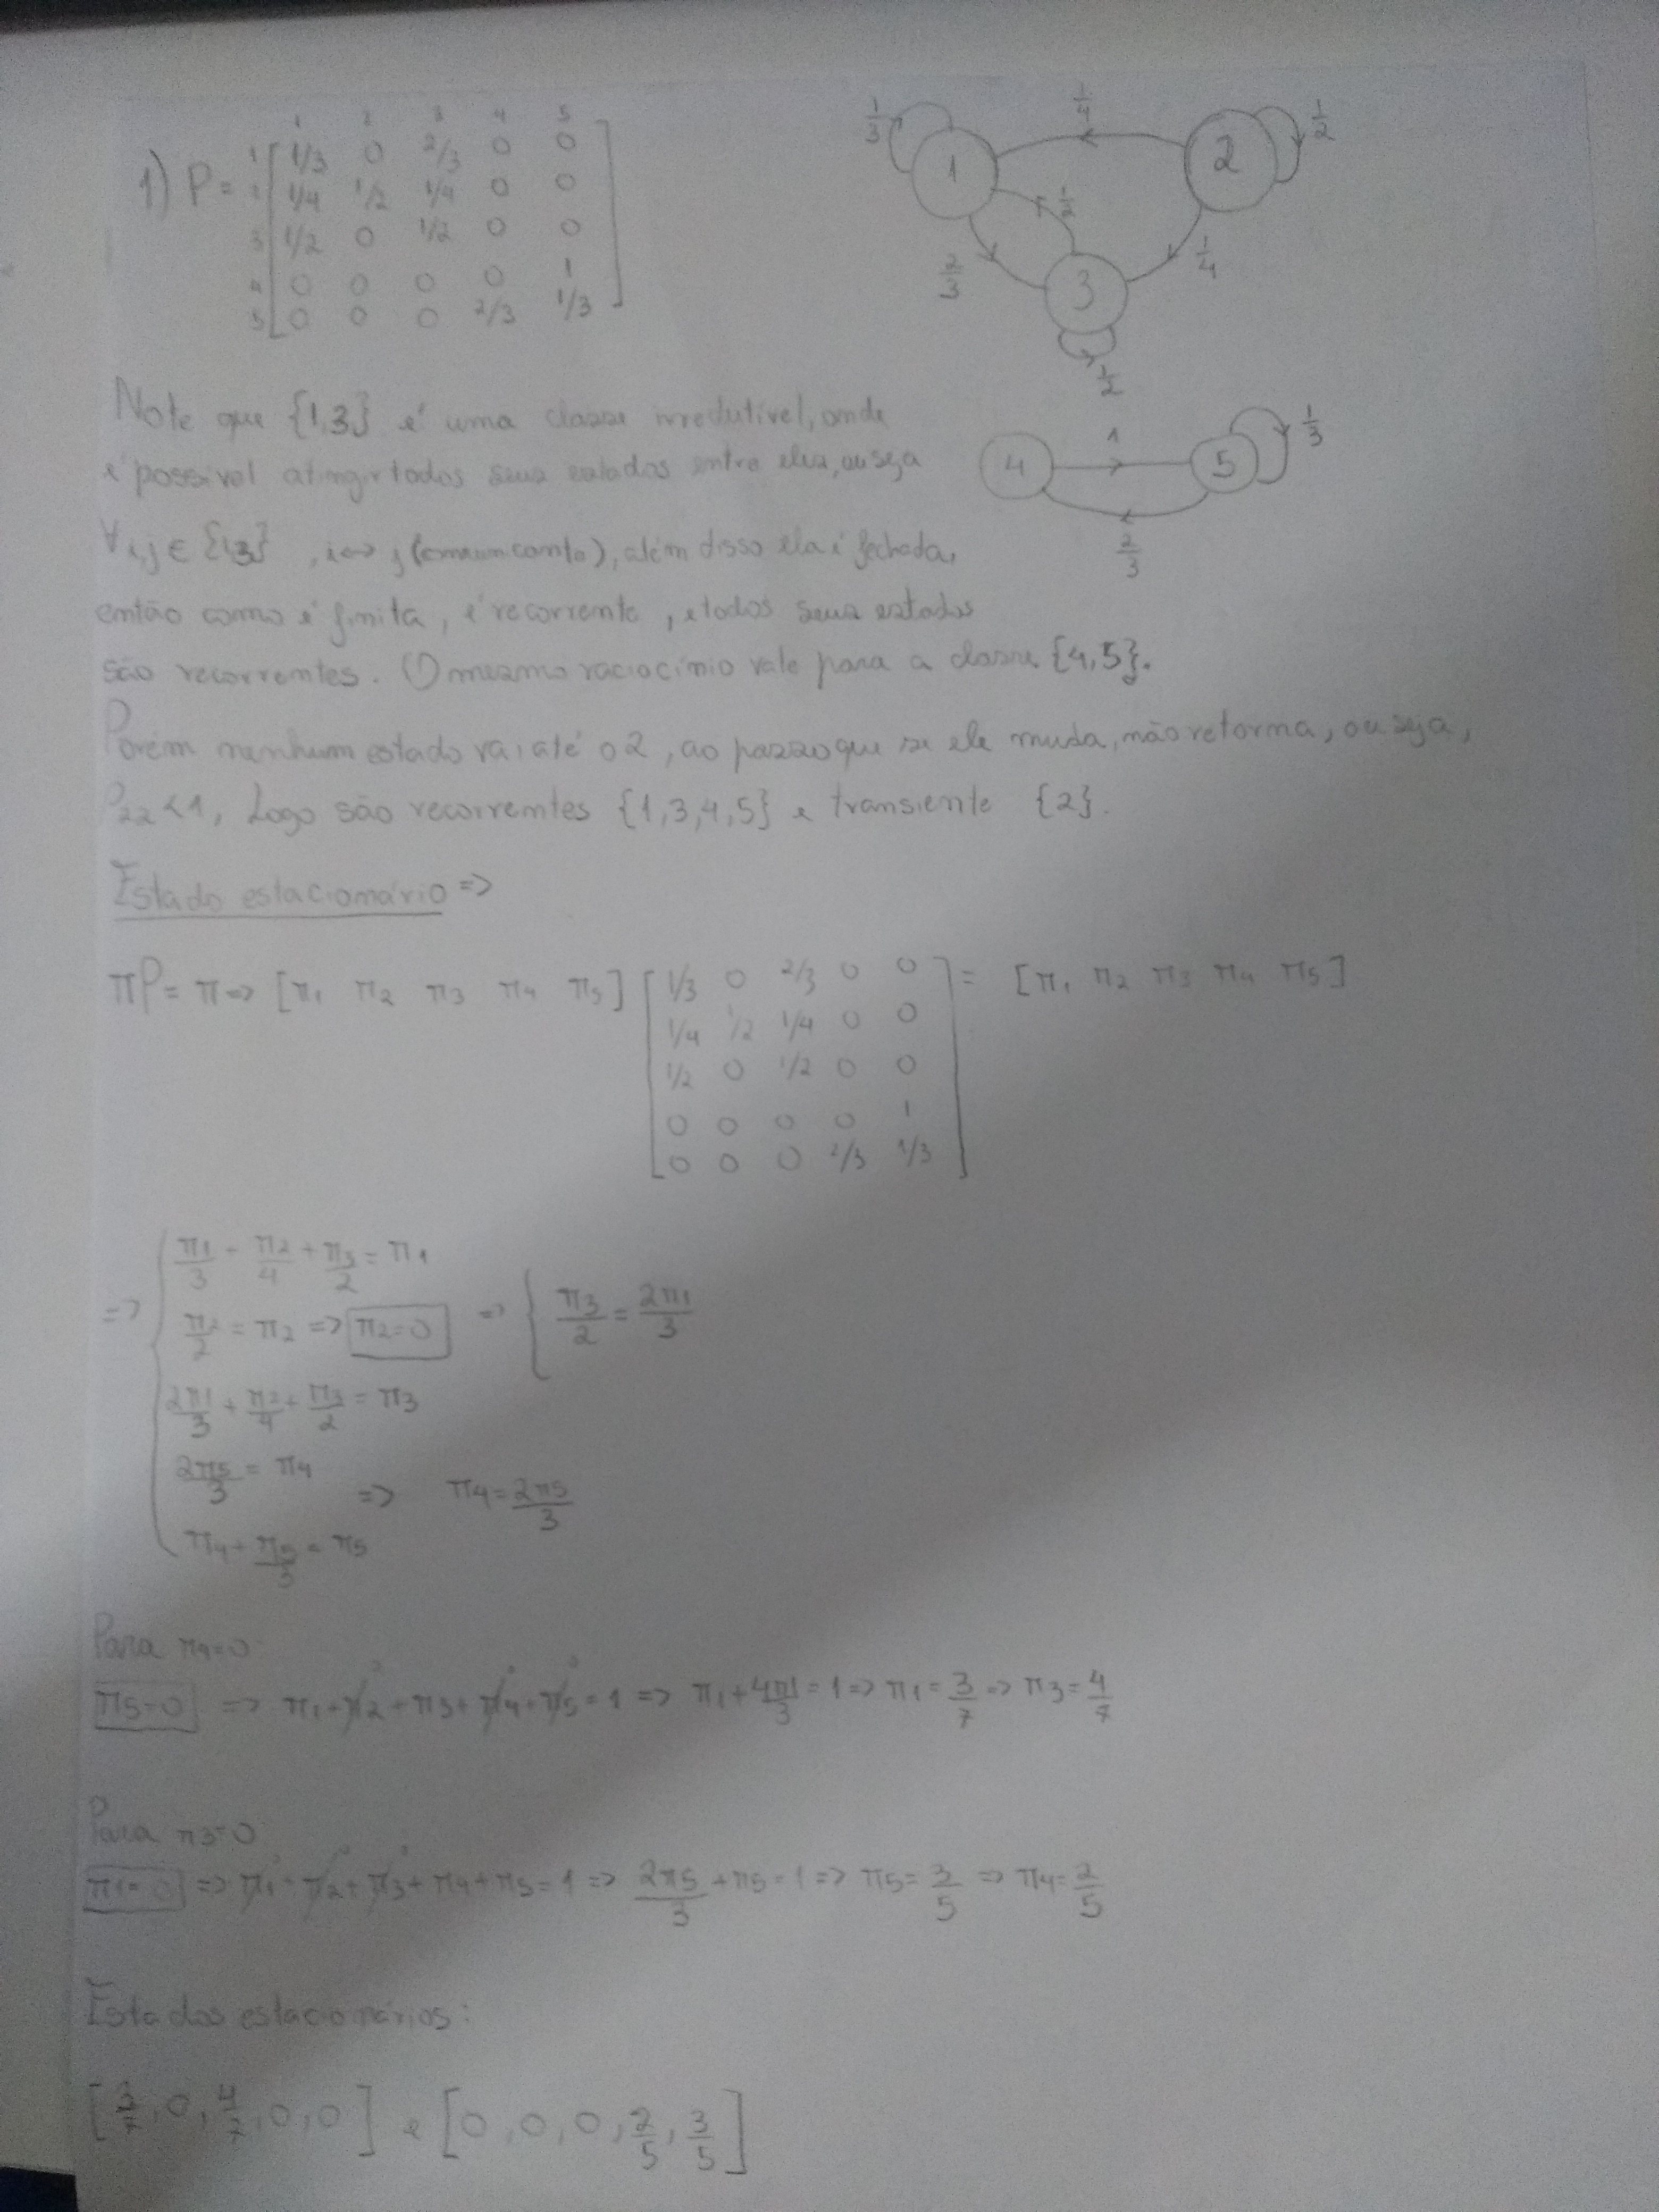 1 2 3 4 5
1) P =
1 [ 1/3 0 2/3 0 0 ]
2 [ 1/4 1/2 1/4 0 0 ]
3 [ 1/2 0 1/2 0 0 ]
4 [ 0 0 0 0 1 ]
5 [ 0 0 0 2/3 1/3 ]
1/3 1 1/4 2 1/2
1/2
2/3 3 1/4
1/2
4 1 5 1/3
2/3
Note que {1,3} é uma classe irredutível, onde
é possível atingir todos seus estados entre eles, ou seja
∀ i,j ∈ {1,3}, i↔j (comunicante), além disso ela é fechada,
então como é finita, é recorrente, e todos seus estados
são recorrentes. O mesmo raciocínio vale para a classe {4,5}.
Porém nenhum estado vai até o 2, ao passo que se ele muda, não retorna, ou seja,
P22<1, Logo são recorrentes {1,3,4,5} e transiente {2}.
Estado estacionário =>
πP = π => [π1 π2 π3 π4 π5] [ 1/3 0 2/3 0 0 ] = [π1 π2 π3 π4 π5]
[ 1/4 1/2 1/4 0 0 ]
[ 1/2 0 1/2 0 0 ]
[ 0 0 0 0 1 ]
[ 0 0 0 2/3 1/3 ]
π1/3 + π2/4 + π3/2 = π1
=> π2/2 = π2 => π2=0 => { π3/2 = 2π1/3
2π1/3 + π2/4 + π3/2 = π3
2π5/3 = π4 => π4 = 2π5/3
π4 + π5/3 = π5
Para π4=0
π5=0 => π1 + π2 + π3 + π4 + π5 = 1 => π1 + 4π1/3 = 1 => π1 = 3/7 => π3 = 4/7
Para π3=0
π1=0 => π1 + π2 + π3 + π4 + π5 = 1 => 2π5/3 + π5 = 1 => π5 = 3/5 => π4 = 2/5
Estados estacionários:
[3/7, 0, 4/7, 0, 0] e [0, 0, 0, 2/5, 3/5]